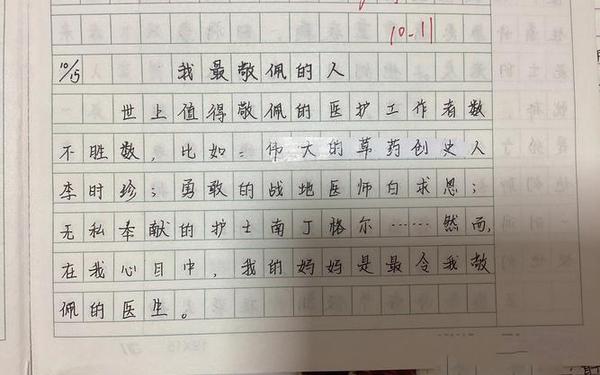 10.11
10/15 我最敬佩的人
世上值得敬佩的医护工作者数
不胜数，比如：伟大的草药创史人
李时珍；勇敢的战地医师白求恩；
无私奉献的护士南丁格尔……然而，
在我心目中，我的妈妈是最令我敬
佩的医生。